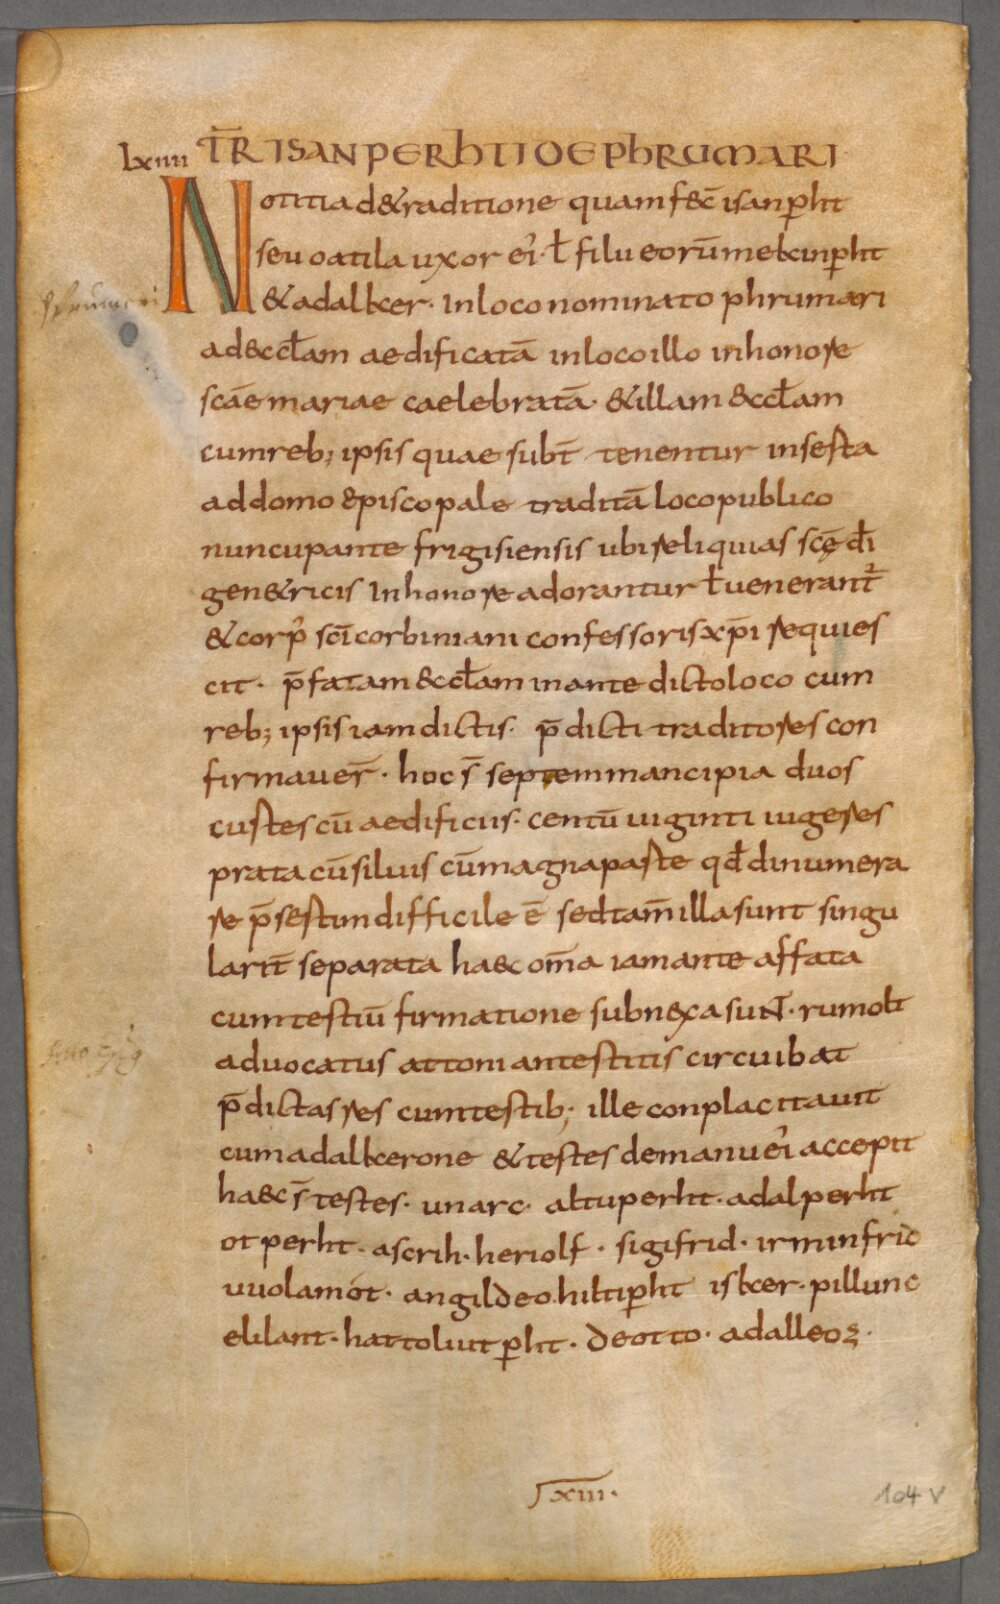 lxiiii T̄R ISANPERHTI DE PHRUMARI
Notitia de traditione quam fec̄ isanp̄ht
seu oatila uxor ei᷒ · ł filii eorum̄ mekinp̄ht
& adalker · In loco nominato phrumari
ad &cc̄lam aedificatā in loco illo in honore
sc̄ae mariae caelebratā · & illam &cc̄lam
cum reb; ipsis quae subt̄ tenentur inserta
ad domo episcopale traditā loco publico
nuncupante frigisiensis ubi reliquias sc̄ę d̄i
gen&ricis In honore adorantur ł uenerant᷒
& corp᷒ sc̄i corbiniani confessoris xp̄i requies
cit · p̄fatam &cc̄lam in ante dicto loco cum
reb; ipsis iam dictis · p̄dicti traditores con
firmauer̄ · hoc s̄ septem mancipia duos
custes cū aedificiis · centū uiginti iugeres
prata cū siluis cū magna parte qd̄ dinumera
re p̄sertim difficile ē sed tam̄ illa sunt singu
larit̄ separata haec om̄a iam ante affata
cum testiū firmatione subnexa suNT · rumolt
aduocatus attoni antestitis circuibat
p̄dictas res cum testib; ille conplacitauit
cum adalkerone & testes de manu ei᷒ accepit
haec s̄ testes · unarc · altuperht · adalperht
otperht · ascrih · heriolf · sigifrid · irminfrid
uuolamót · angildeo hiltip̄ht isker · pillunc
elilant · hatto liutp̄ht · deotto · adalleoz ·
xiii ·
104 v